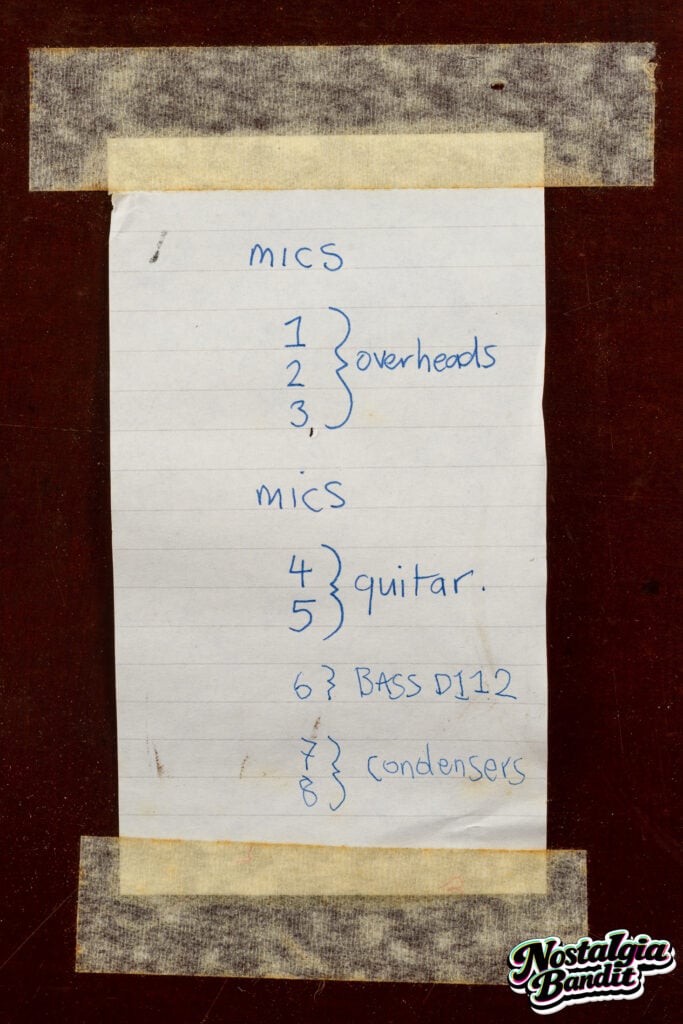 mics
1
2 } overheads
3
mics
4 } guitar.
5
6 } BASS D112
7 } condensers
8
Nostalgia
Bandit